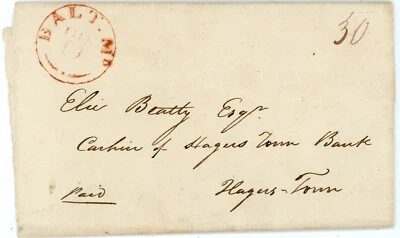 BALT. Md
50
Elie Beatty Esqr.
Cashier of Hagers Town Bank
Paid
Hagers-Town